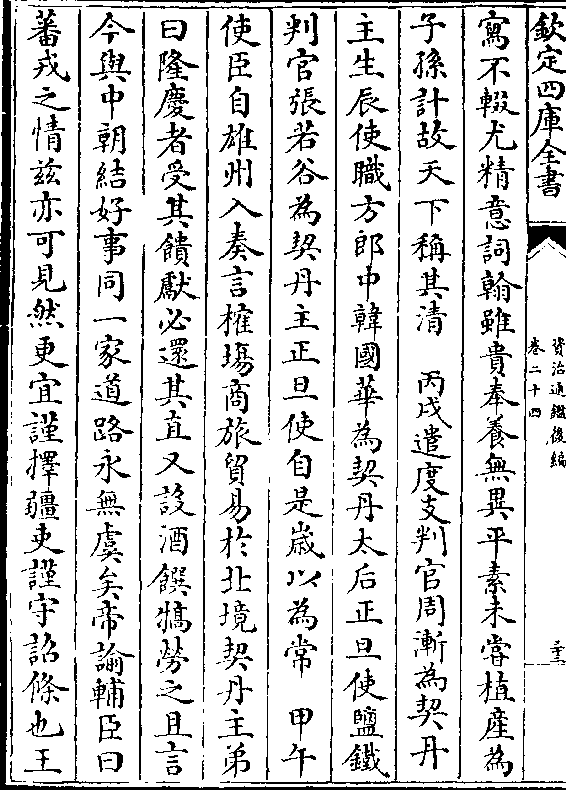 欽定四庫全書
資治通鑑後編
卷二十四
三十三
寫不輟尤精意詞翰雖貴奉養無異平素未嘗植産為
子孫計故天下稱其清　丙戌遣度支判官周漸為契丹
主生辰使職方郎中韓國華為契丹太后正旦使鹽鐵
判官張若谷為契丹主正旦使自是嵗以為常　甲午
使臣自雄州入奏言榷塲商旅貿易於北境契丹主弟
曰隆慶者受其饋獻必還其直又設酒饌犒勞之且言
今與中朝結好事同一家道路永無虞矣帝諭輔臣曰
蕃戎之情兹亦可見然更宜謹擇疆吏謹守詔條也王